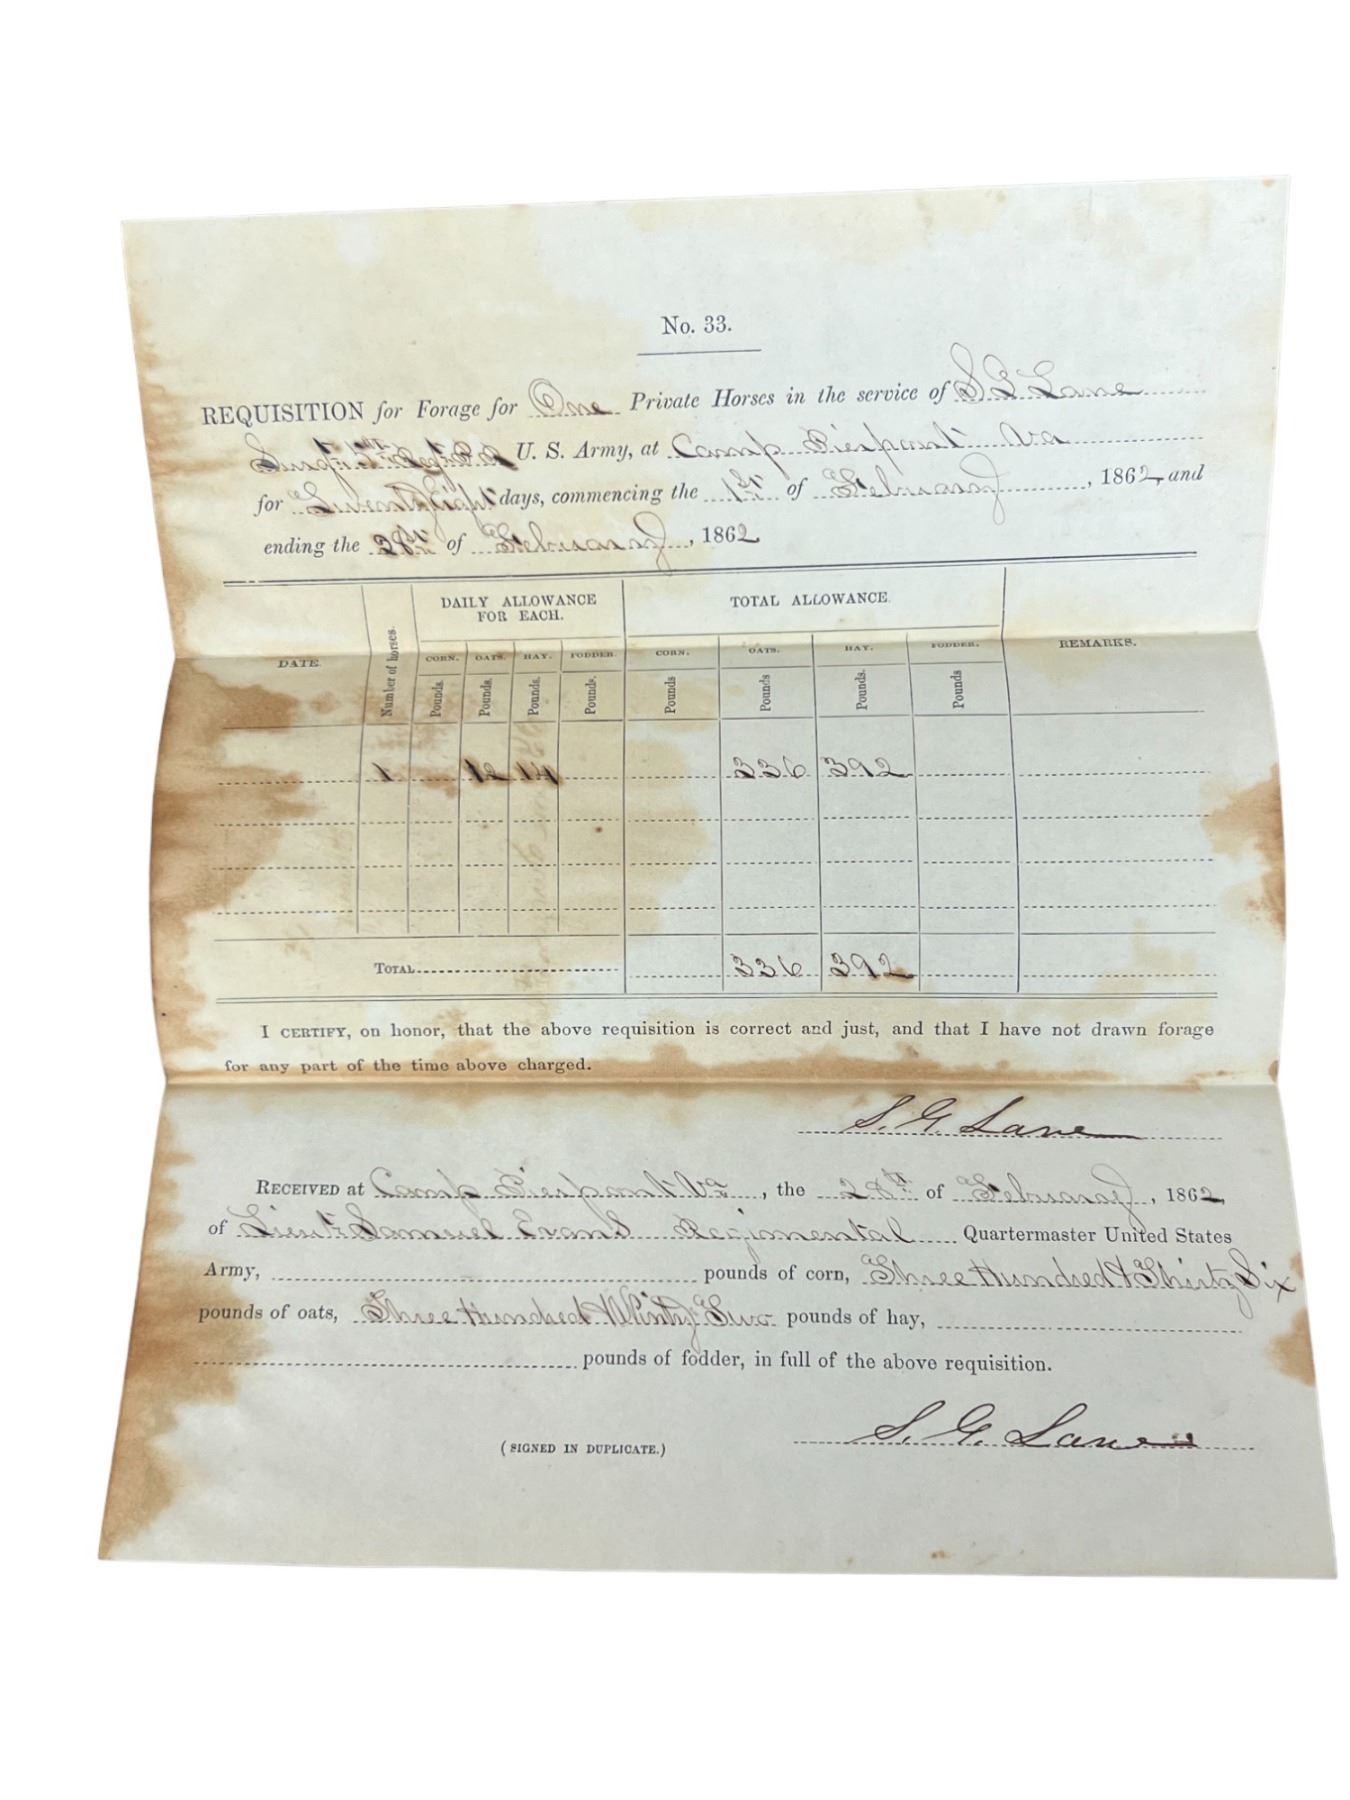 No. 33.
REQUISITION for Forage for One Private Horses in the service of S G Lane
Surg. 5th Regt P R U. S. Army, at Camp Pierpont Va
for Twenty Eight days, commencing the 1st of February, 1862 and
ending the 28th of February, 1862
DATE. Number of horses. DAILY ALLOWANCE FOR EACH. TOTAL ALLOWANCE. REMARKS.
CORN. OATS. HAY. FODDER. CORN. OATS. HAY. FODDER.
Pounds. Pounds. Pounds. Pounds. Pounds Pounds Pounds. Pounds
1 12 14 336 392
TOTAL 336 392
I CERTIFY, on honor, that the above requisition is correct and just, and that I have not drawn forage
for any part of the time above charged.
S. G. Lane
RECEIVED at Camp Pierpont Va, the 28th of February, 1862,
of Lieut. Samuel Evans Regimental Quartermaster United States
Army, pounds of corn, Three Hundred & Thirty Six
pounds of oats, Three Hundred & Ninty Two pounds of hay,
pounds of fodder, in full of the above requisition.
S. G. Lane
(SIGNED IN DUPLICATE.)